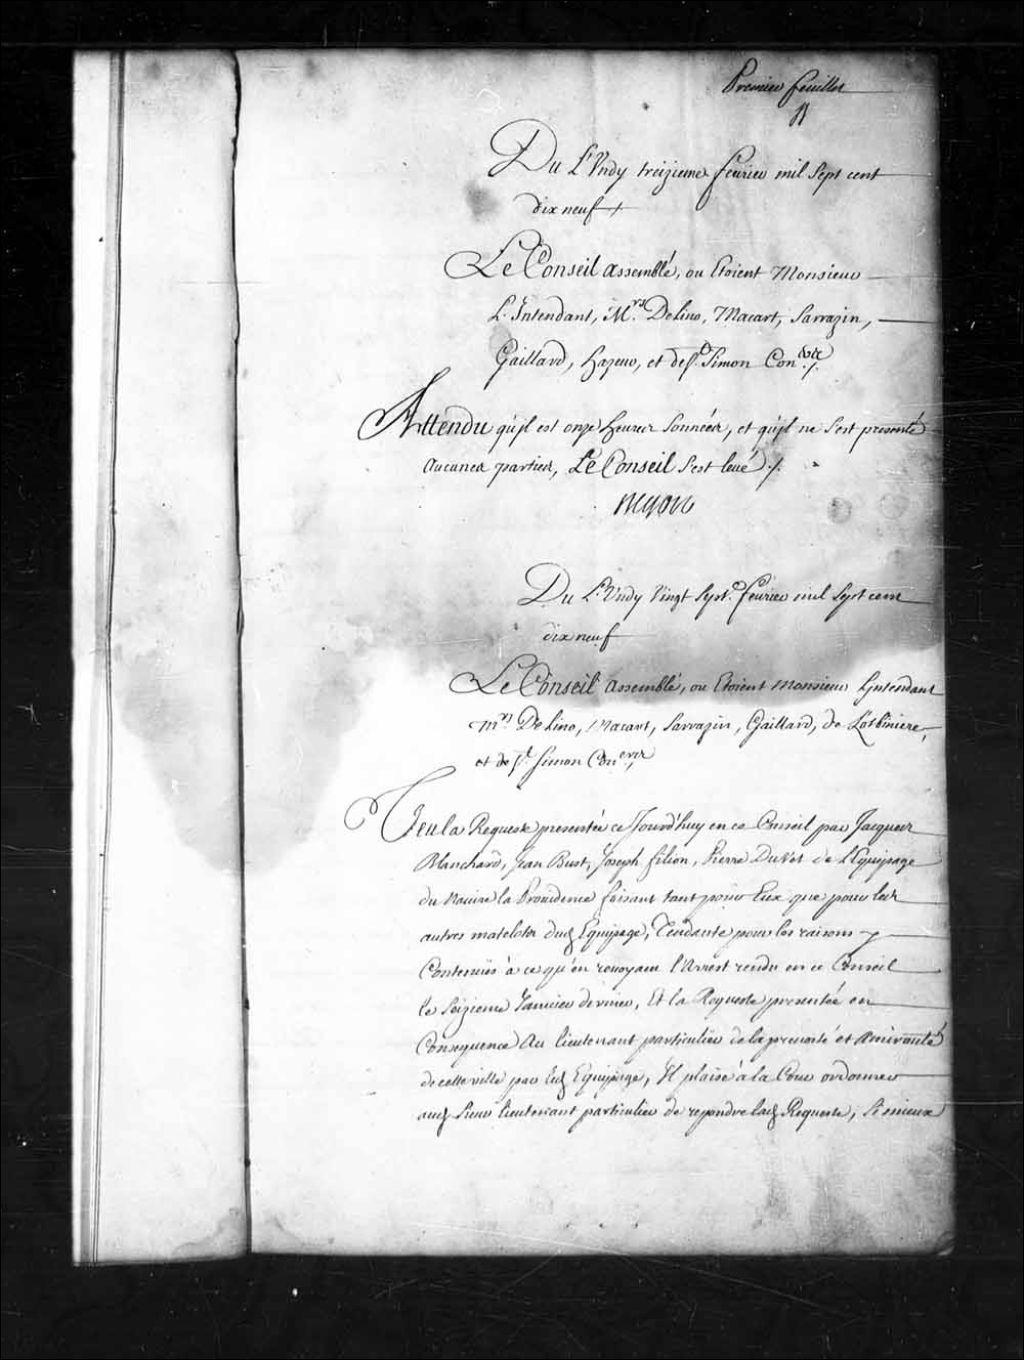 Premier feuillet
Du L'Undy treizieme feurier mil Sept cent
dix neuf
Le Conseil assemblé, ou Etoient Monsieur
L'Intendant, Mrs Delino, Macart, Sarrazin,
Gaillard, hazeur, et de St Simon Coners ./.
Attendu qu'jl est onze heures Sonnées, et qu'jl ne s'est presenté
aucunes parties, Le Conseil s'est leué ./.
Du L'Undy Vingt Sept.e feurier mil Sept cent
dix neuf
Le Conseil assemblé, ou Etoient Monsieur Lintendant
mrs Delino, Macart, Sarrazin, Gaillard, de Lotbiniere,
et de St Simon Coners
Veu la Requeste presentée ce Jourd'huy en ce Conseil par Jacques
Blanchard, Jean Bust, Joseph filion, Pierre Duvot de L'Equipage
du Nauire la Prouidence faisant tant pour Eux que pour les
autres matelots dud Equipage, Tendante pour les raisons
Contenües à ce qu'en renvoyant l'Arrest rendu en ce Conseil
le Seizieme Januier dernier, Et la Requeste presentée en
Consequence Au lieutenant particulier de la preuosté et Amirauté
de cette ville par led Equipage, Il plaise à la Cour ordonner
aud Sieur lieutenant particulier de repondre lad Requeste, Si mieux